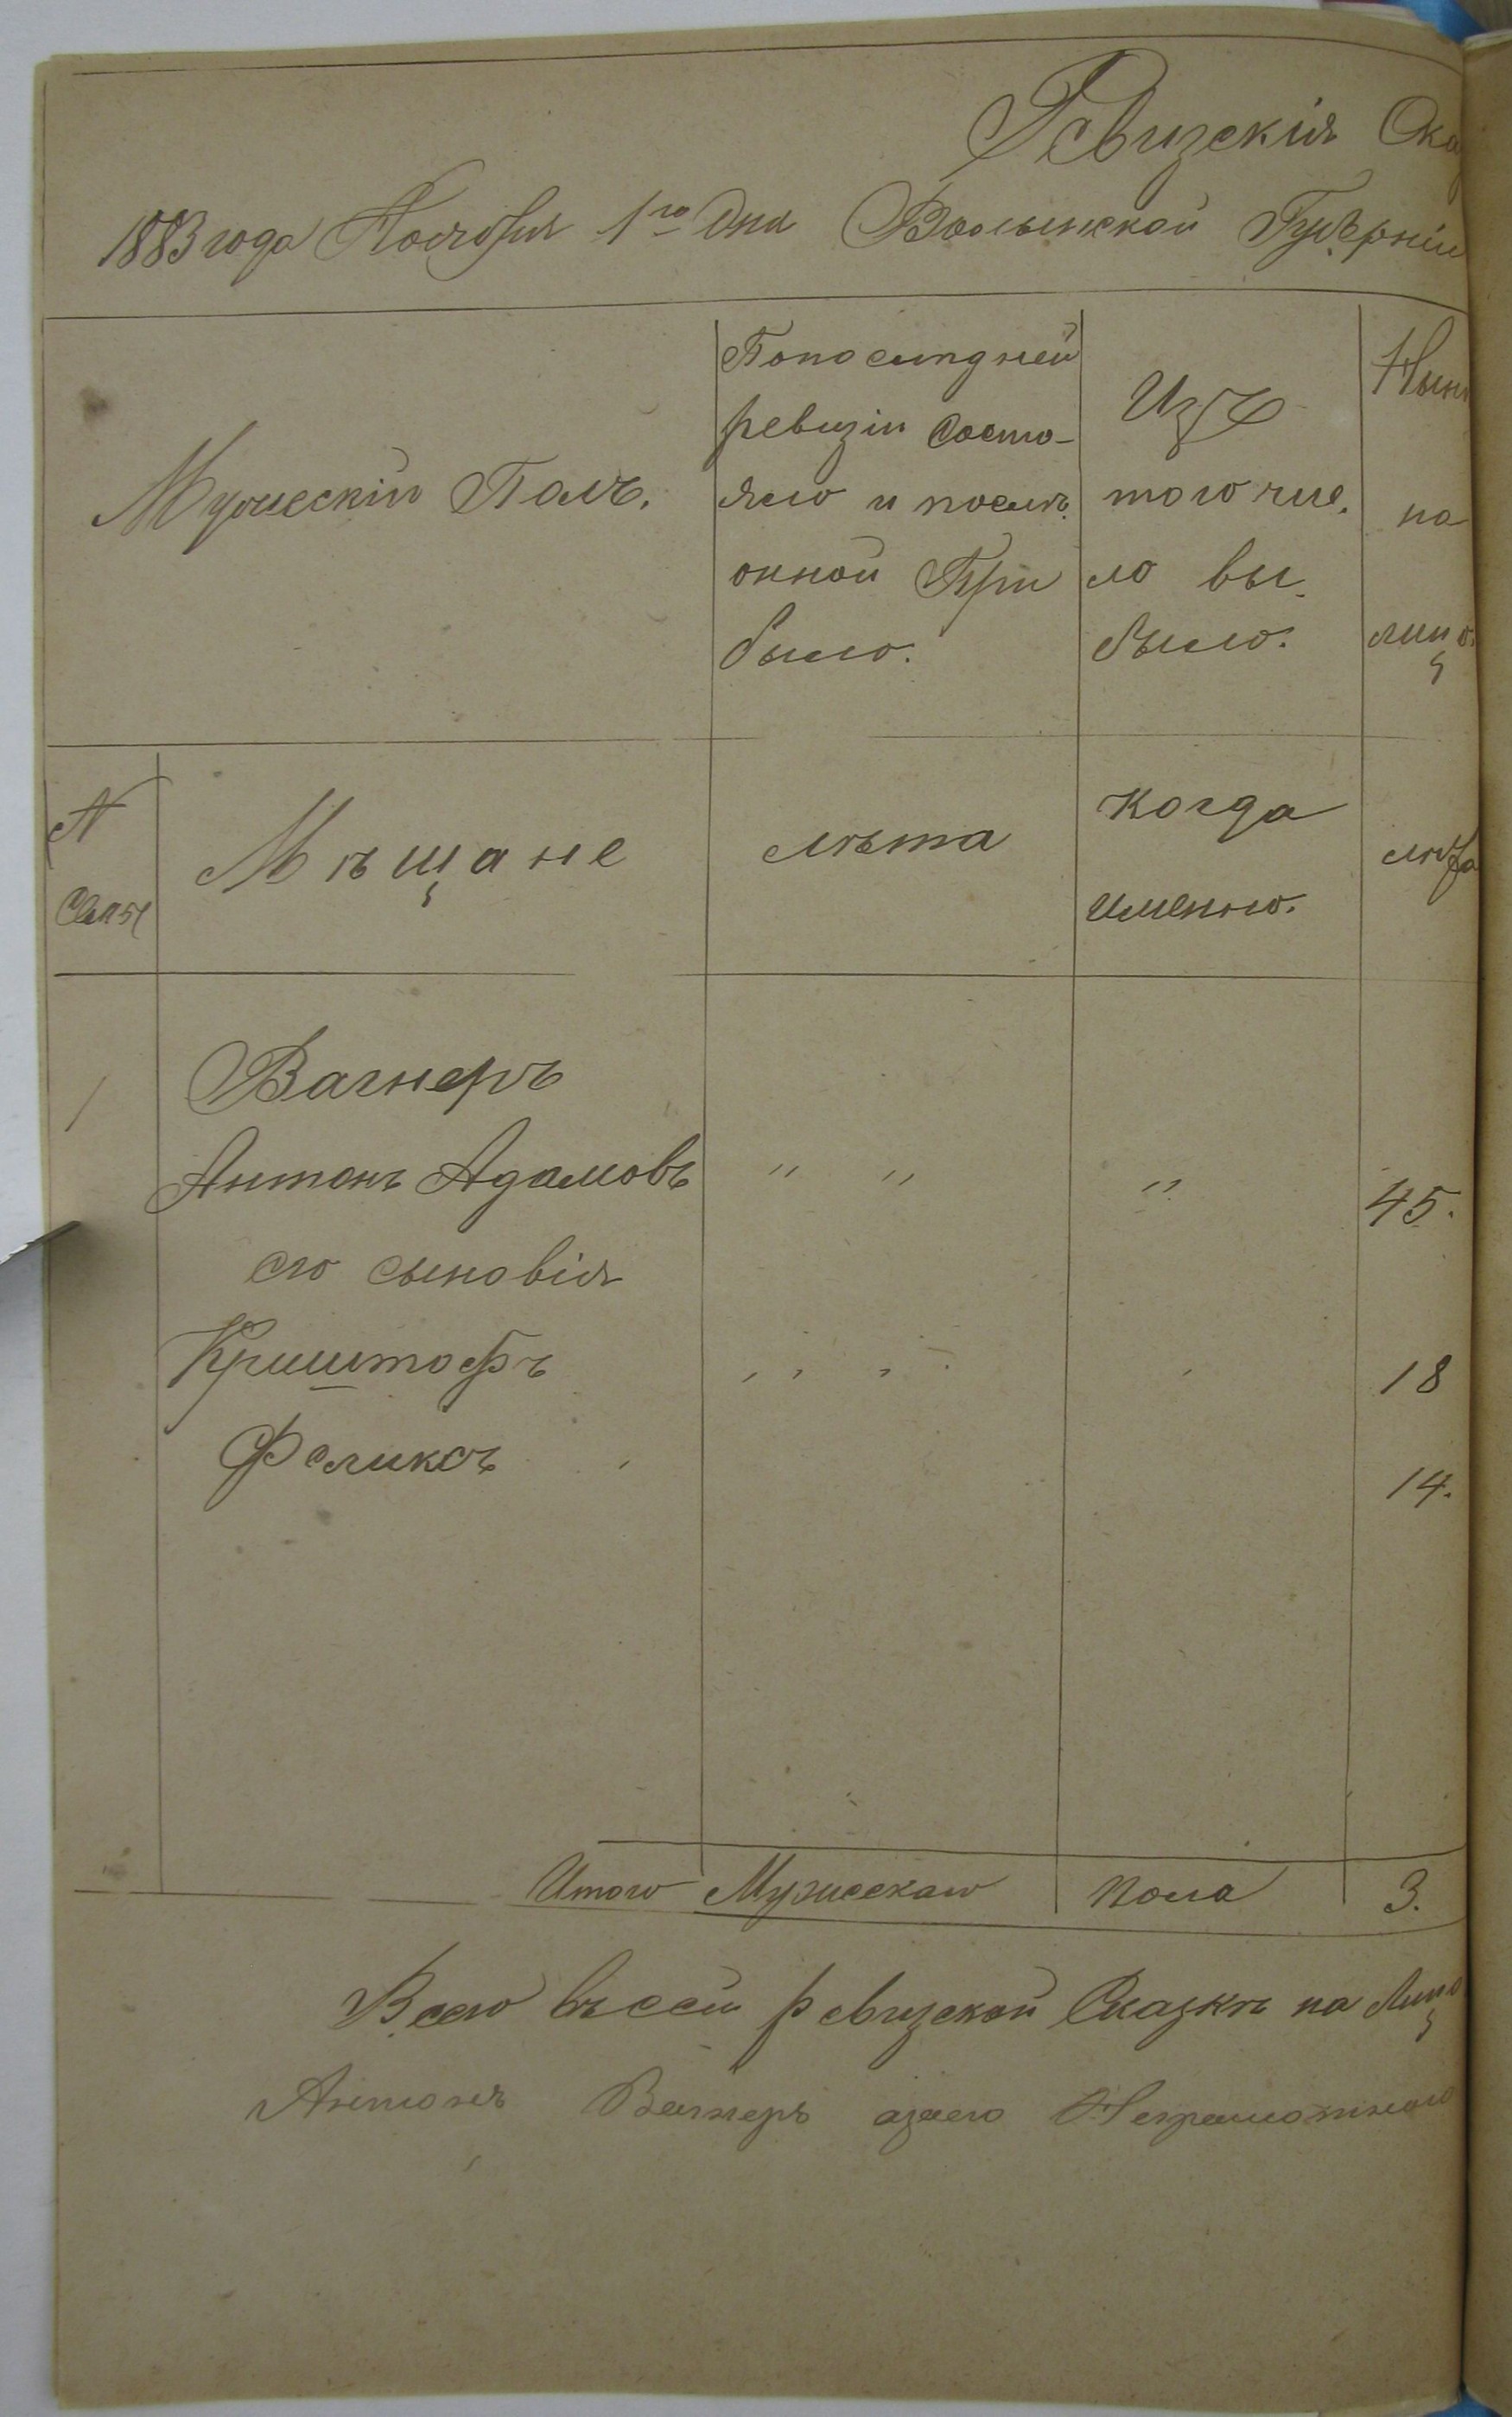 Ревизскія Ска
1883 года Ноября 1го дня Волынской Губерніи
Мужескій Полъ.
Попослидней
ревизіи состо-
яло и послѣ
онной При
было.
Изъ
того чис.
ло вы.
было.
Нынѣ
на
лицо
N
Семьи
Мѣщане
лѣта
когда
именно.
лѣта
1 Вагнеръ
Антонъ Адамовъ " " " 45.
его сыновія
Криштофъ 18
Феликсъ 14.
Итого Мужескаго пола 3.
Всего въсей ревизской Сказкѣ на Лицо
Антонъ Вагнеръ азаего Неграмотнаго